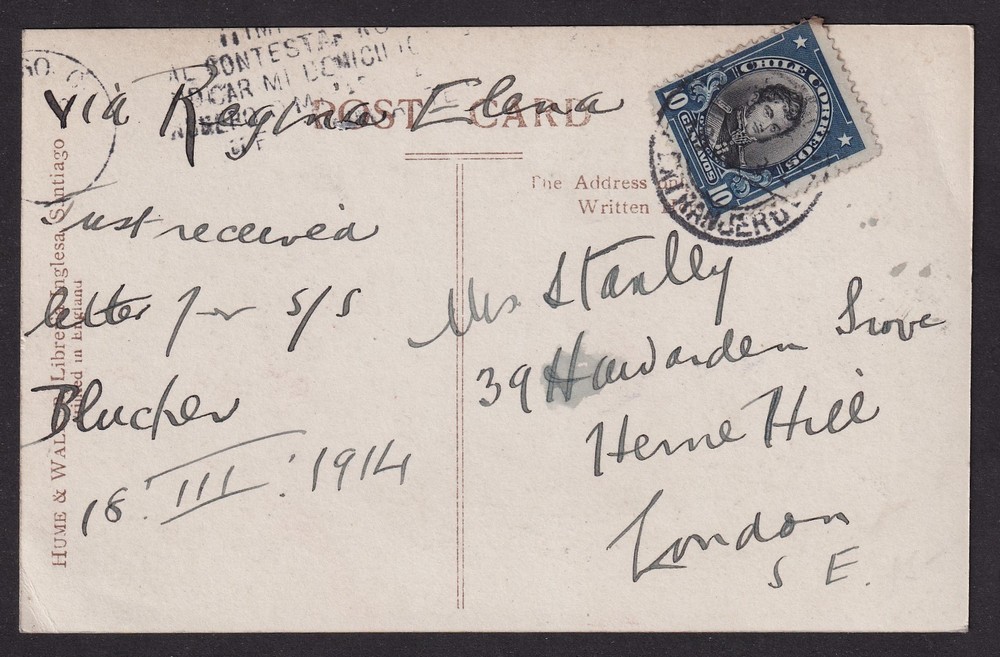 AL CONTESTAR
MI DOMICILIO
Via Regina Elena
POST CARD
The Address
Written
CHILE CORREOS
10
CENTAVOS
10
HUME & WAL Libreria Inglesa, Santiago
Printed in England
Just received
letter per S/S
Blucher
18. III. 1914
Mrs Stanley
39 Hawarden Grove
Herne Hill
London
S E.